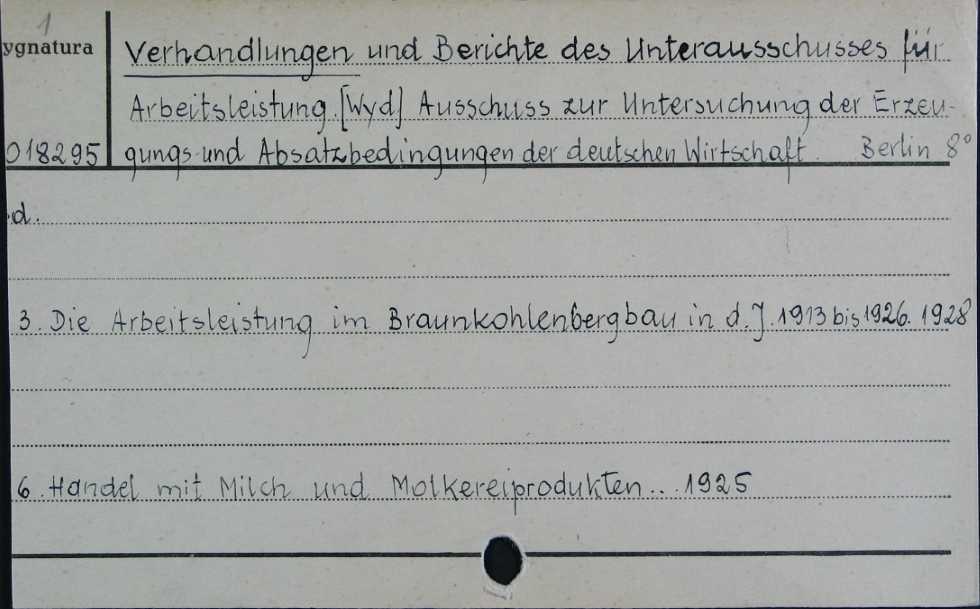 1
ygnatura
Verhandlungen und Berichte des Unterausschusses für
Arbeitsleistung. [Wyd] Ausschuss zur Untersuchung der Erzeu-
018295
gungs- und Absatzbedingungen der deutschen Wirtschaft. Berlin 8°
.d.
3. Die Arbeitsleistung im Braunkohlenbergbau in d. J. 1913 bis 1926. 1928
6. Handel mit Milch und Molkereiprodukten... 1925